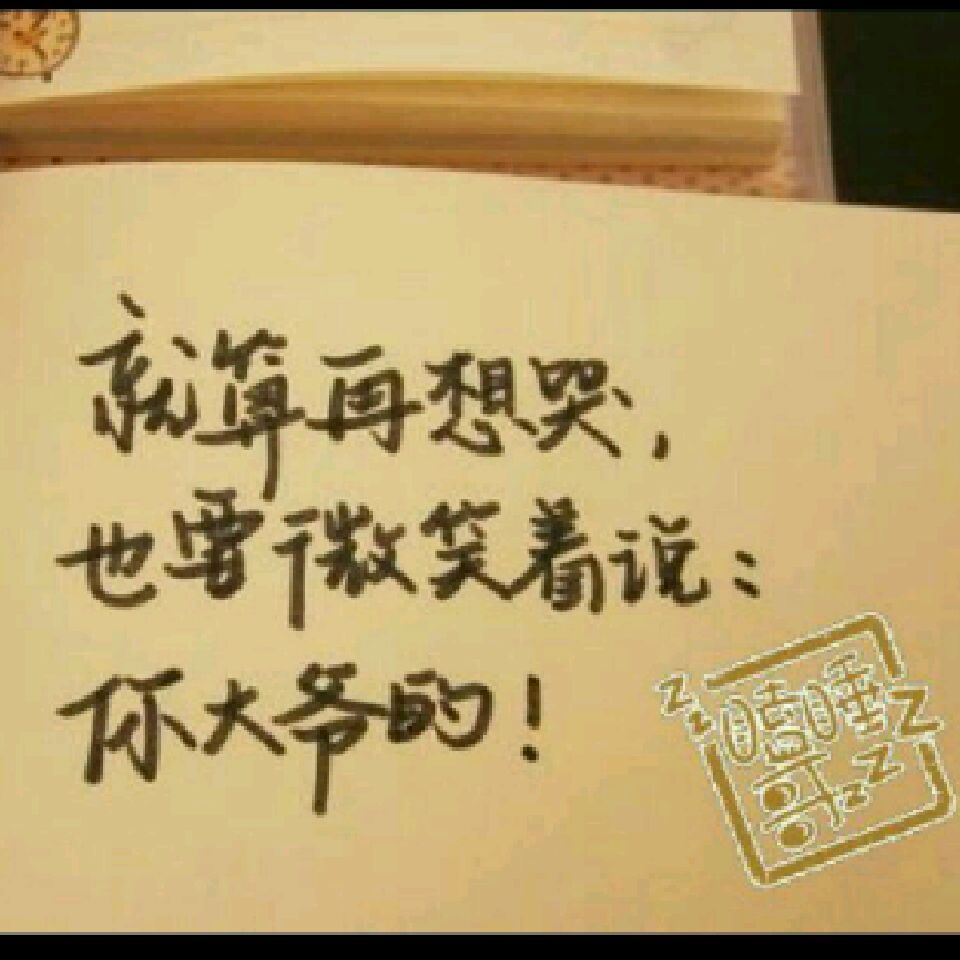 就算再想哭，
也要微笑着说：
你大爷的！
瞌睡
哥